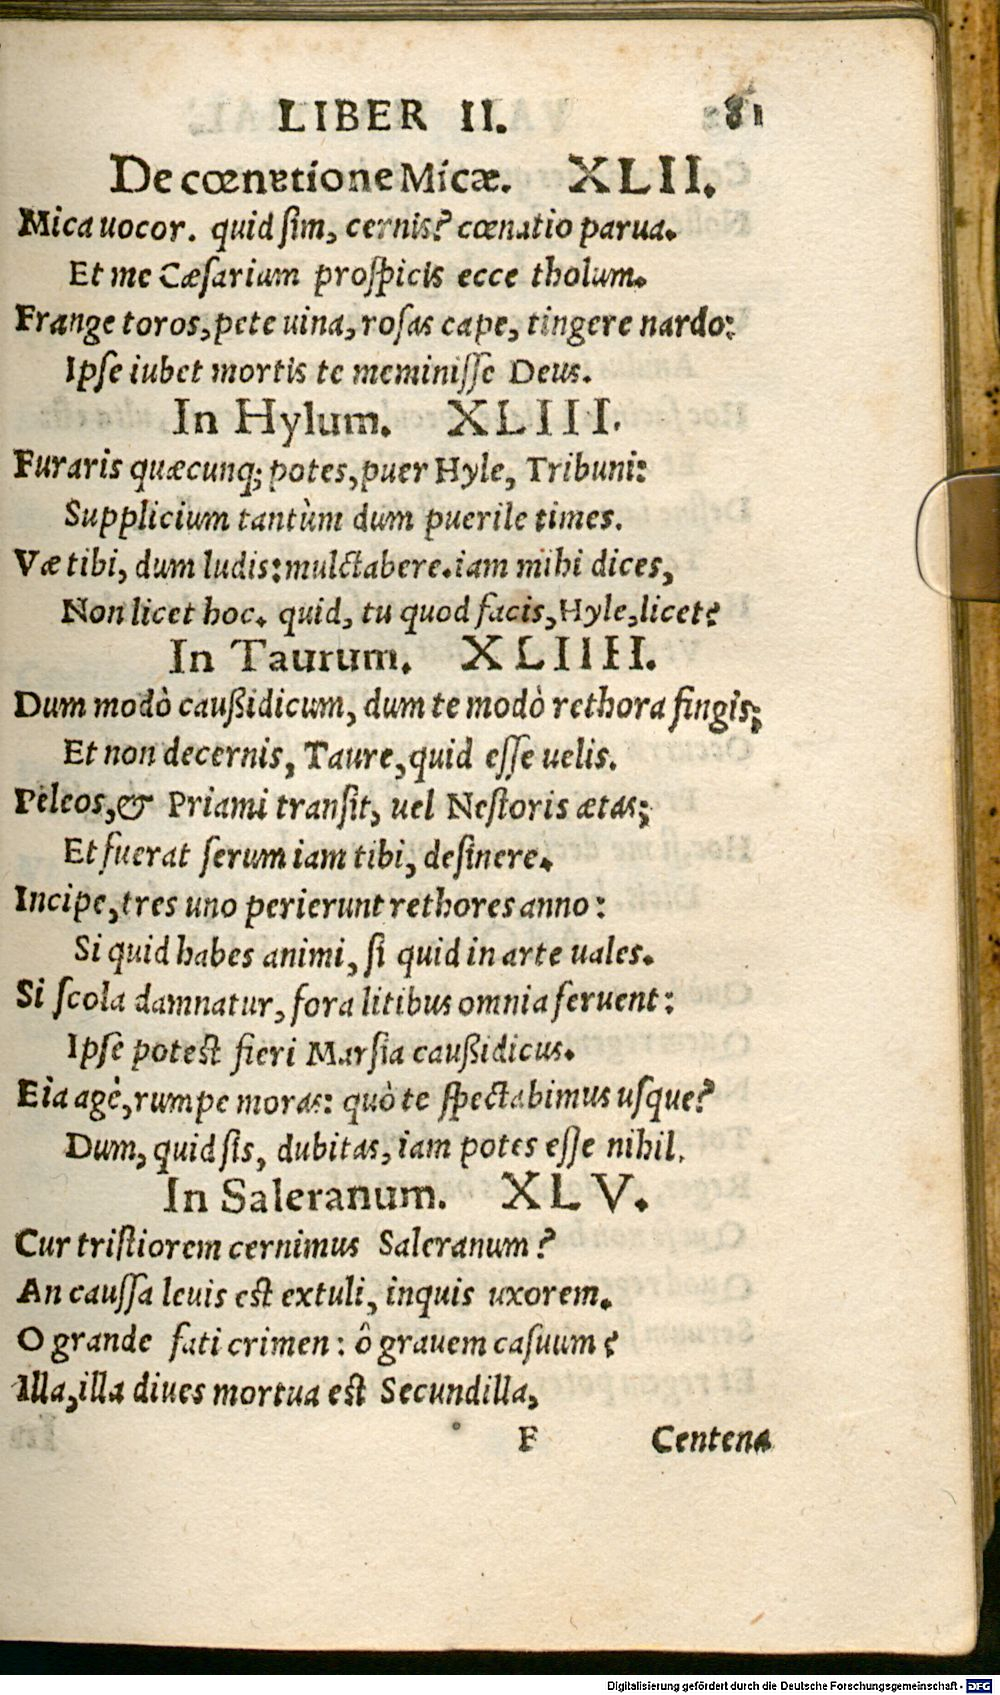 LIBER II. 81
De cœnatione Micæ. XLII.
Mica uocor. quid ſim, cernis? cœnatio parua.
Et me Cæſarium proſpicis ecce tholum.
Frange toros, pete uina, roſas cape, tingere nardo:
Ipſe iubet mortis te meminiſſe Deus.
In Hylum. XLIII.
Furaris quæcunq; potes, puer Hyle, Tribuni:
Supplicium tantùm dum puerile times.
Væ tibi, dum ludis: mulctabere. iam mihi dices,
Non licet hoc. quid, tu quod facis, Hyle, licet?
In Taurum. XLIIII.
Dum modò caußidicum, dum te modò rethora fingis;
Et non decernis, Taure, quid eſſe uelis.
Peleos, & Priami tranſit, uel Neſtoris ætas;
Et fuerat ſerum iam tibi, deſinere.
Incipe, tres uno perierunt rethores anno:
Si quid habes animi, ſi quid in arte uales.
Si ſcola damnatur, fora litibus omnia feruent:
Ipſe poteſt fieri Marſia caußidicus.
Eia age, rumpe moras: quò te ſpectabimus uſque?
Dum, quid ſis, dubitas, iam potes eſſe nihil.
In Saleranum. XLV.
Cur triſtiorem cernimus Saleranum?
An cauſſa leuis eſt extuli, inquis uxorem.
O grande fati crimen: ô grauem caſuum?
Illa, illa diues mortua eſt Secundilla,
F Centena
Digitalisierung gefördert durch die Deutsche Forschungsgemeinschaft - DFG